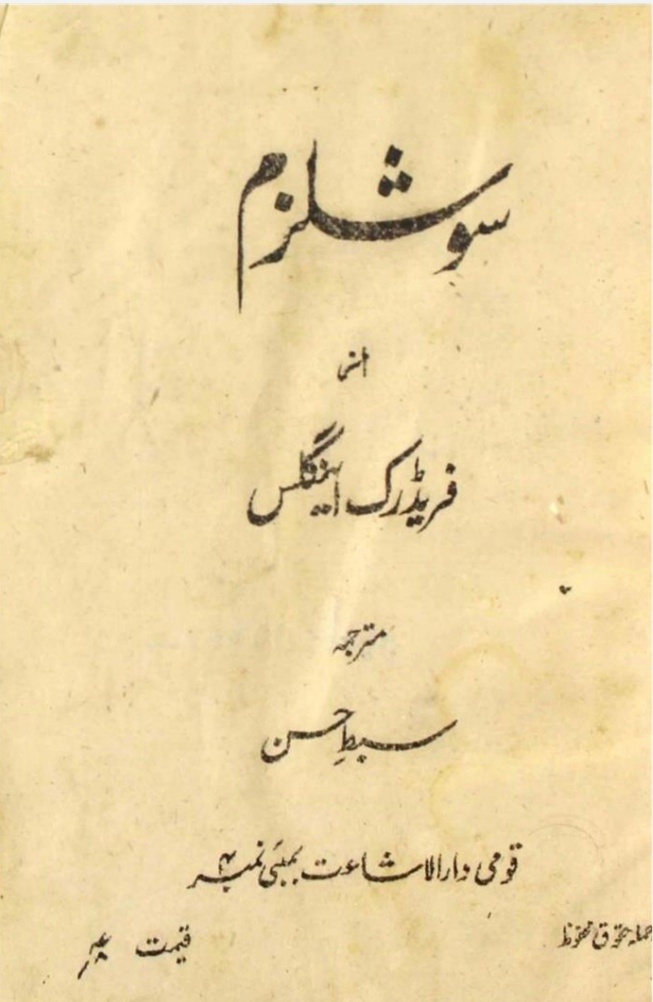 سوشلزم
از
فریڈرک اینگلس
مترجمہ
سبطِ حسن
قومی دارالاشاعت بمبئی نمبر ۴
جملہ حقوق محفوظ
قیمت